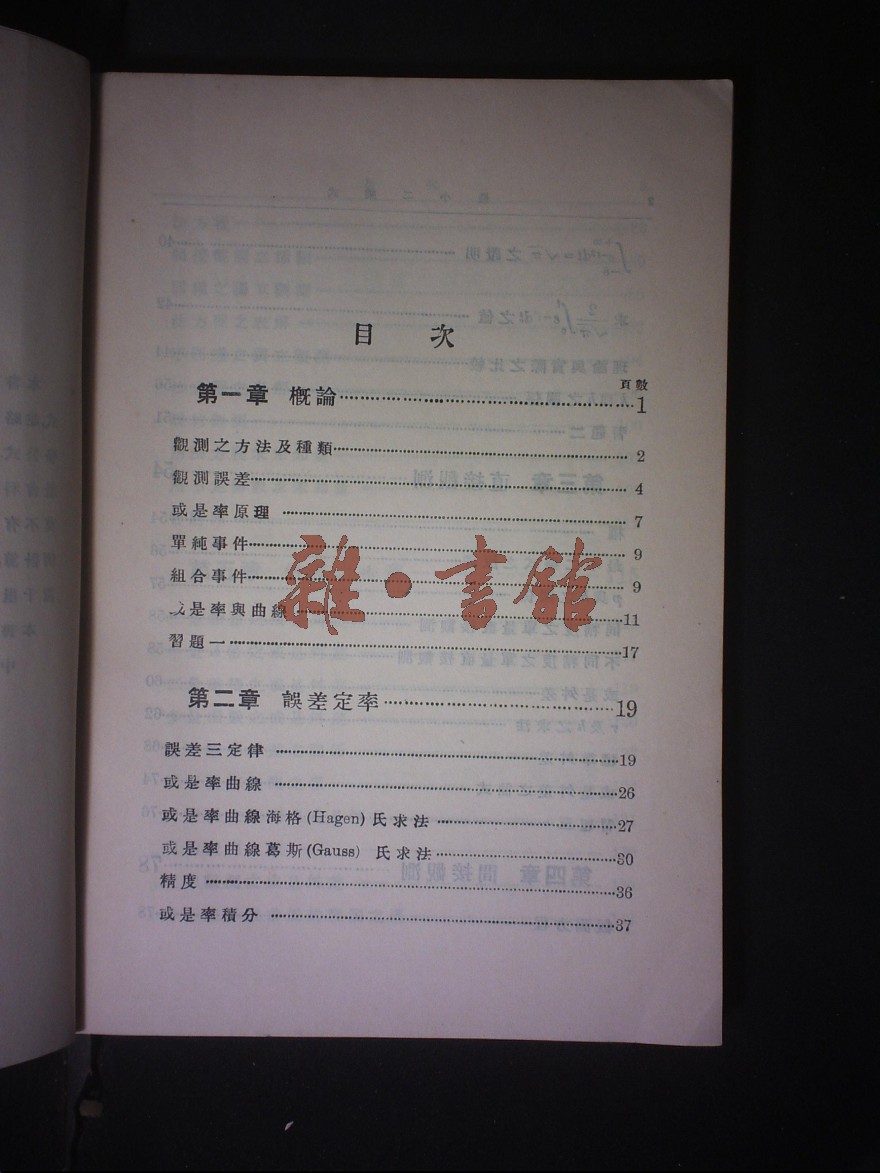 目次
頁數
第一章 概論 1
觀測之方法及種類 2
觀測誤差 4
或是率原理 7
單純事件 9
組合事件 9
或是率與曲線 11
習題一 17
第二章 誤差定率 19
誤差三定律 19
或是率曲線 26
或是率曲線海格(Hagen)氏求法 27
或是率曲線葛斯(Gauss)氏求法 30
精度 36
或是率積分 37
雜·書館